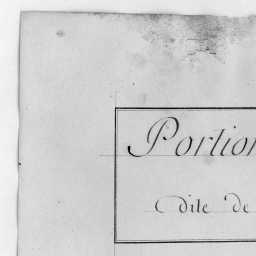 Portion
Dite De